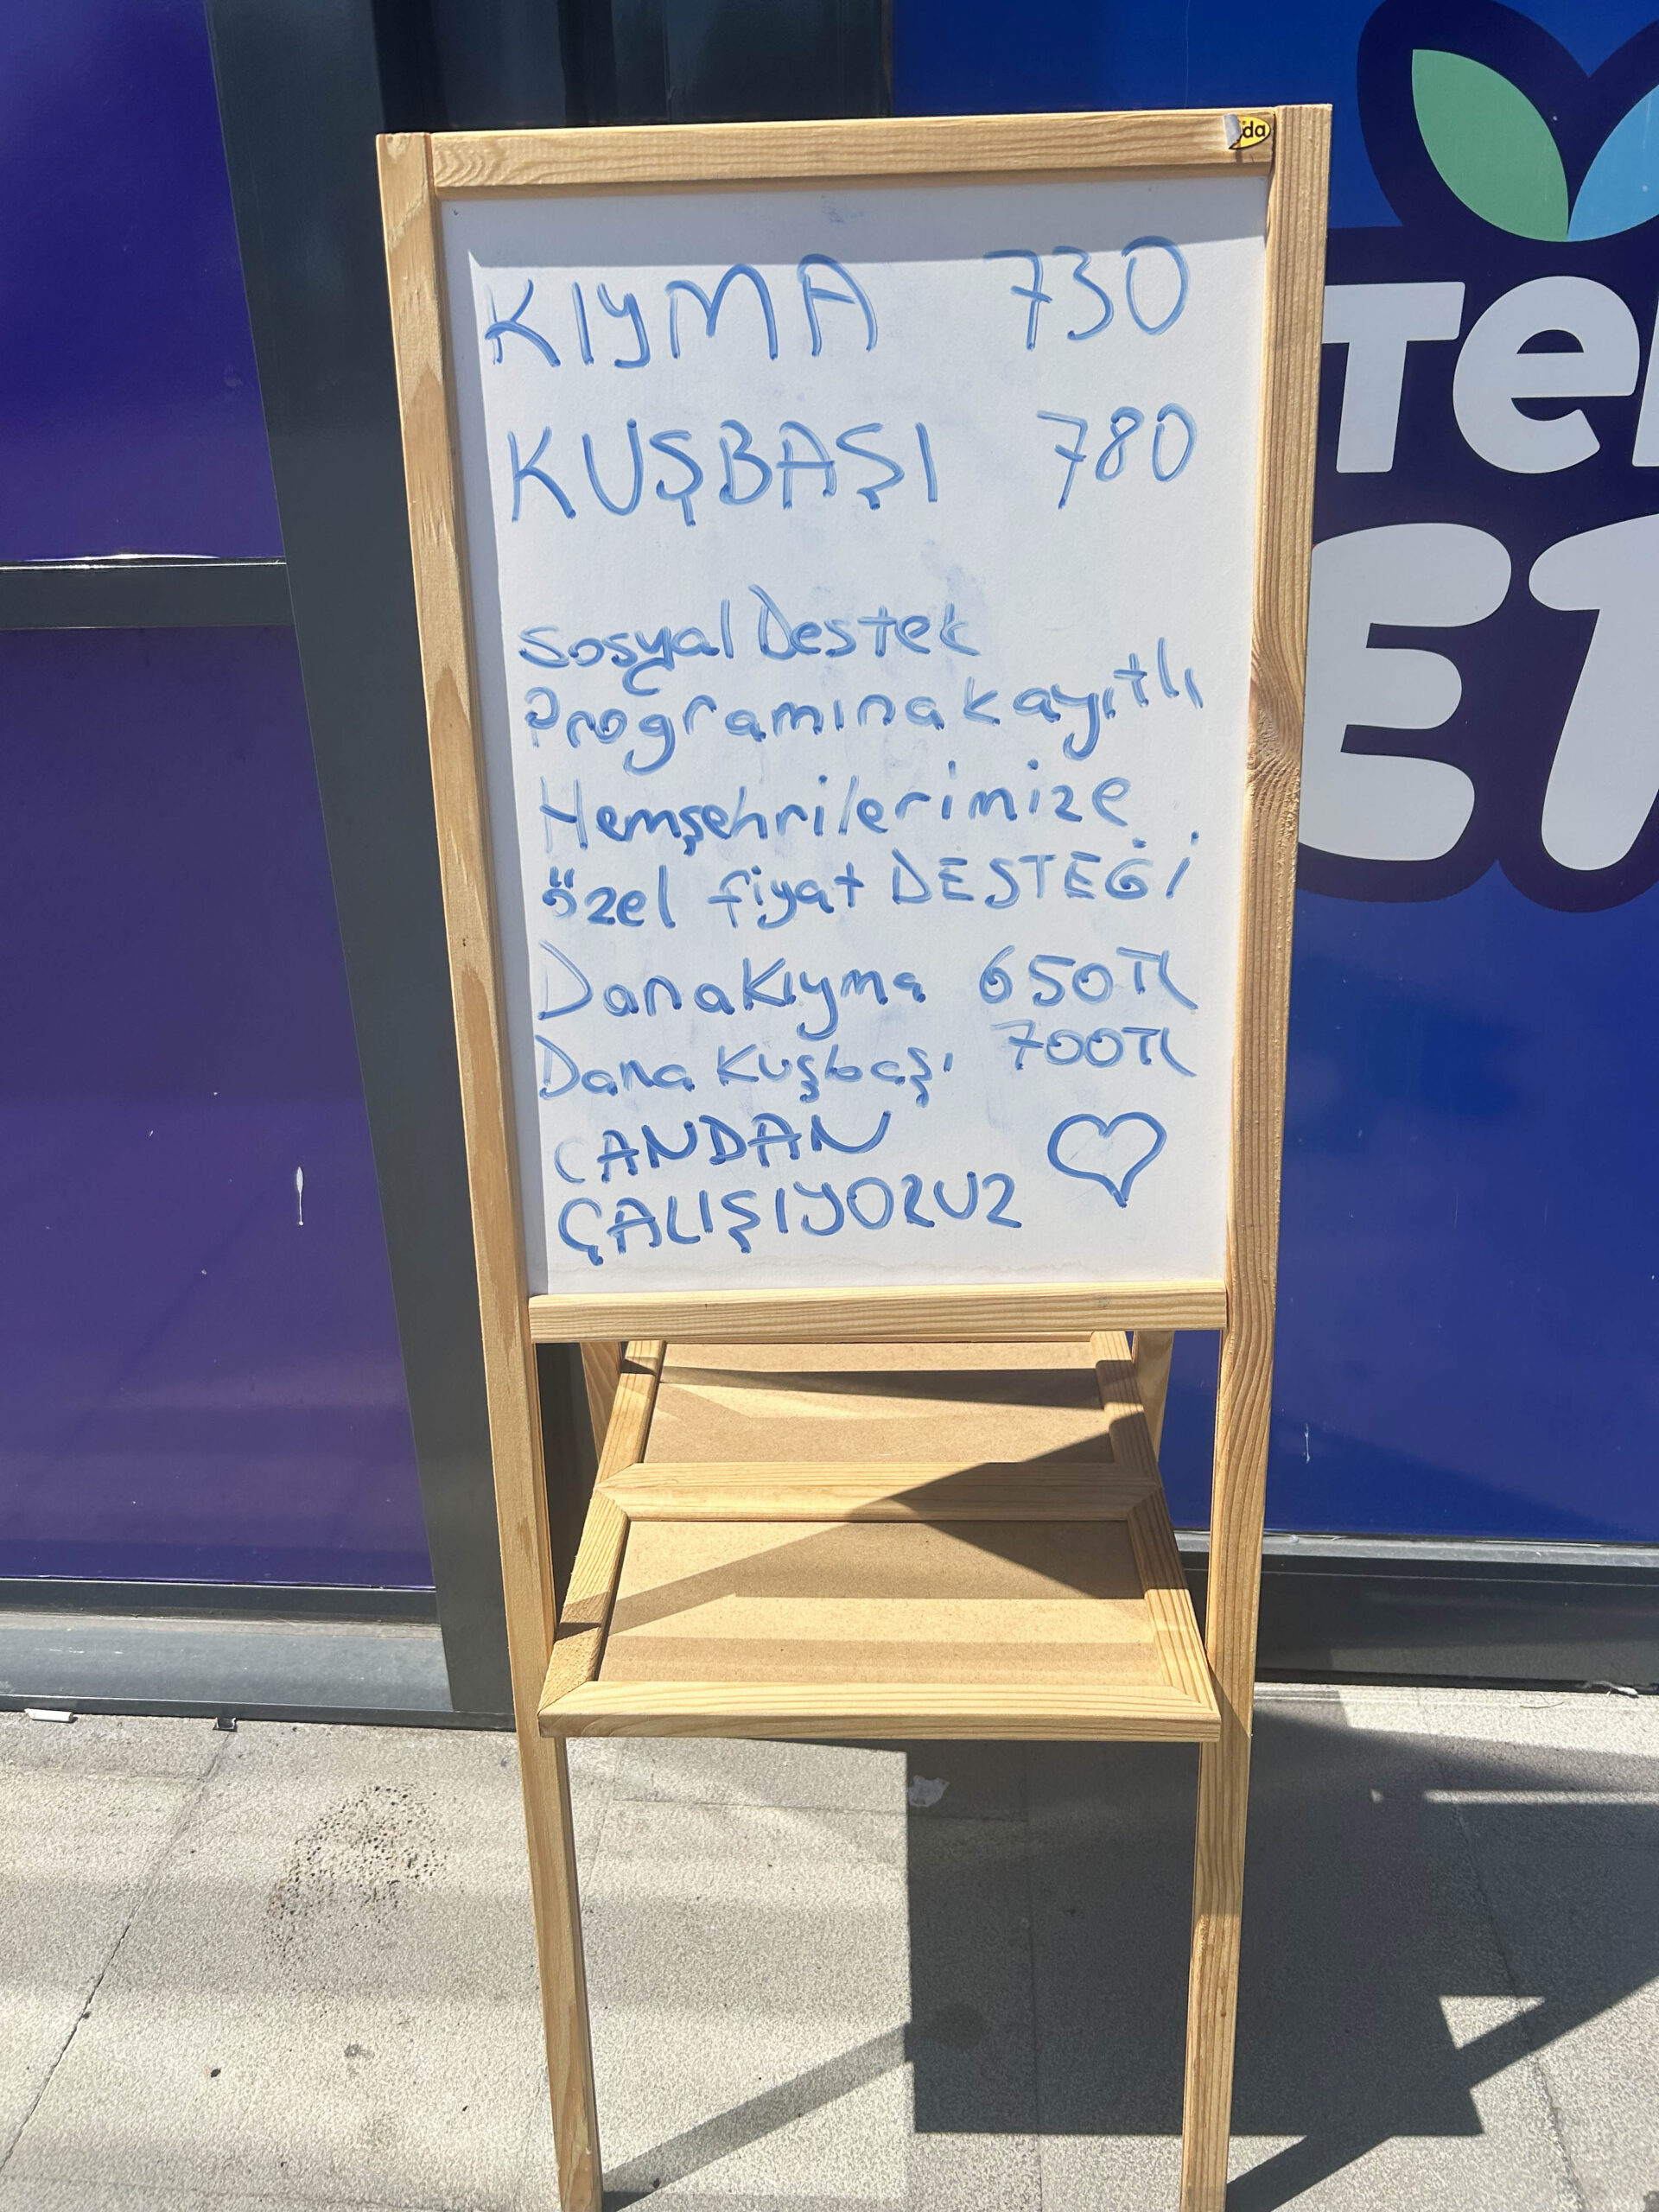 KIYMA 730
KUŞBAŞI 780
Sosyal Destek
Programına kayıtlı
Hemşehrilerimize
özel fiyat DESTEĞİ
Dana Kıyma 650TL
Dana Kuşbaşı 700TL
CANDAN
ÇALIŞIYORUZ